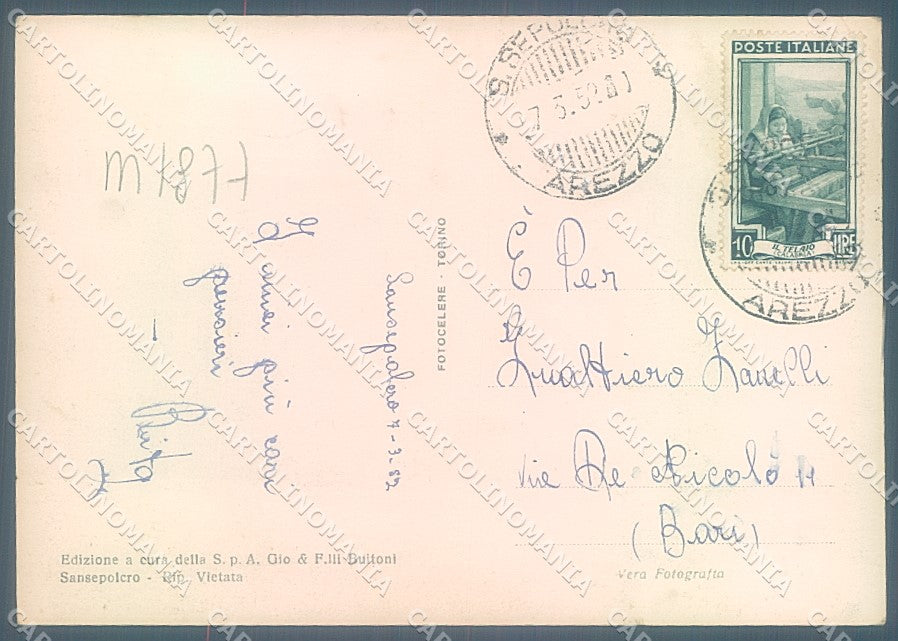 m1877
I miei più cari
pensieri
Rita
Sansepolcro 7-3-52
FOTOCELERE - TORINO
Edizione a cura della S. p. A. Gio & F.lli Buitoni
Sansepolcro - Rip. Vietata
S. SEPOLCRO
7.3.52
AREZZO
POSTE ITALIANE
10 IL TELAIO LIRE
CALABRIA
AREZZO
È Per
Gualtiero Zanelli
via De Nicolò 14
(Bari)
Vera Fotografia
CARTOLINOMANIA